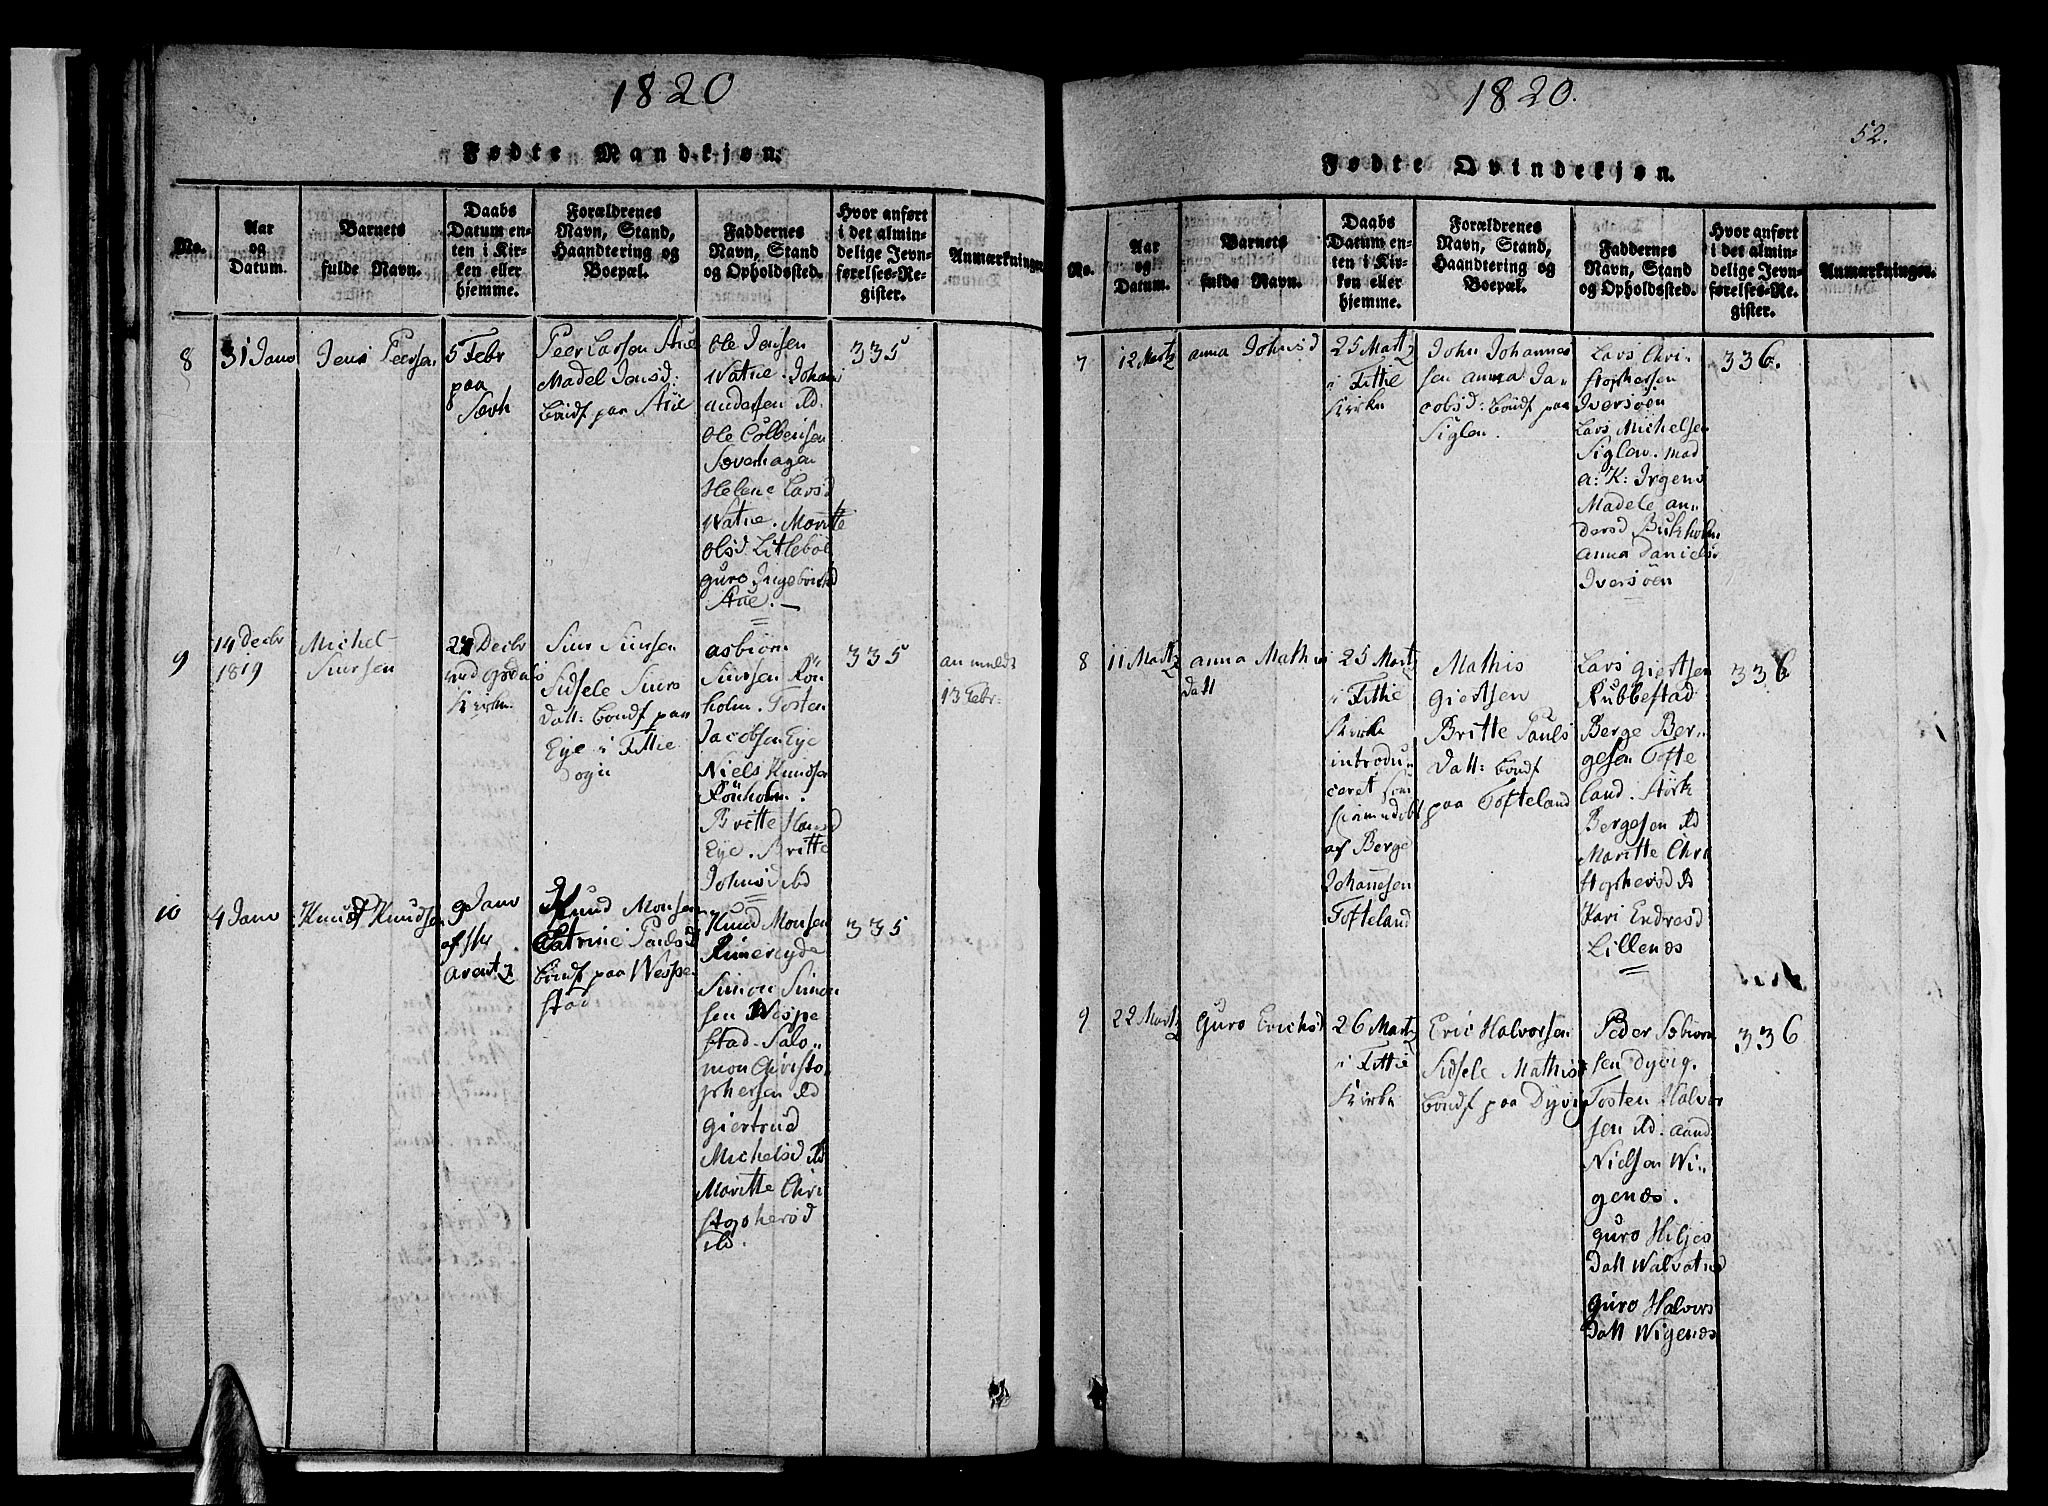 1820
Fødte Mandkjøn.
No.
Aar
og
Datum.
Barnets
fulde Navn.
Daabs
Datum en-
ten i Kir-
ken eller
hjemme.
Forældrenes
Navn, Stand,
Haandtering og
Boepæl.
Faddernes
Navn, Stand
og Opholdssted.
Hvor anført
i det almin-
delige Jevn-
førelses-Re-
gister.
Anmærkninger.
8
31 Janv
Jens Peersen
5 Febr
paa
Peer Larsen
Madel Jensd:
paa
Ole Jensen
Watne. Johan
andersen ibd.
Ole Colbensen
Helene Larsd
Watne. Moritte
olsd. Litleböe
guro
335
9
14 Decbr
1819
Michel
Siursen
Decbr
Kirke.
Siur Siursen
Sidsele Siurs
Datt: bondf paa
Eye i Fittie
Sogn
asbiörn
Siursen Rön
holm. Tosten
Jacobsen Eye
Niels Knudsen
Rönholm.
Britte Hansd
Eye. Britte
Johnsd ibd
335
anmeldt
13 Febr.
10
4 Janv
Knud Knudsen
9 Janv
af Hr.
arentz
Knud Monsen
Catrine Paulsd
bondf paa Wespe
stad
Knud Monsen
Simon Simon
sen Wespe
stad. Salo-
mon Christo-
phersen ibd
giertrud
Michelsd ibd
Moritte Chri
stophersd
ibd.
335
1820.
52.
Fødte Qvindekjøn.
No.
Aar
og
Datum.
Barnets
fulde Navn.
Daabs
Datum en-
ten i Kir-
ken eller
hjemme.
Forældrenes
Navn, Stand,
Haandtering og
Boepæl.
Faddernes
Navn, Stand
og Opholdssted.
Hvor anført
i det almin-
delige Jevn-
førelses-Re-
gister.
Anmærkninger.
7
12 Martz
anna Johnsd
25 Martz
i Fittie
Kirke
John Johannes
sen anna Ja-
cobsd: bondf paa
Siglen.
Lars Chri-
stophersen
Iversöen
Lars Michelsen
Siglen. mad
a: K: Irgens
Madele an-
dersd Bukholm
anna Daniels
Iversöen
336.
8
11 Martz
anna Mathis
datt
25 Martz
i Fittie
Kirke
introdu-
ceret som
hiemmedöbt
af Berge
Johannesen
Tofteland
Mathis
Giertsen
Britte Pauls
Datt: bondf
paa Tofteland
Lars Giertsen
Rubbestad
Berge Ber-
gesen Tofte
land. Störk
Bergesen ibd
Maritte Chri
stophersd ibd
Kari Endresd
Lillenæs
336
9
22 Martz
Guro Erichsd
26 Martz
i Fittie
Kirke
Eric Halvorsen
Sidsele Mathisd
bondf paa Dyvig
Peder
sen Dyvig.
Tosten Halvor
sen ibd. aand
Nielsen Wi-
genæs.
guro Hiljes
Datt Walvatne
guro Halvors
Datt Wigenæs
336